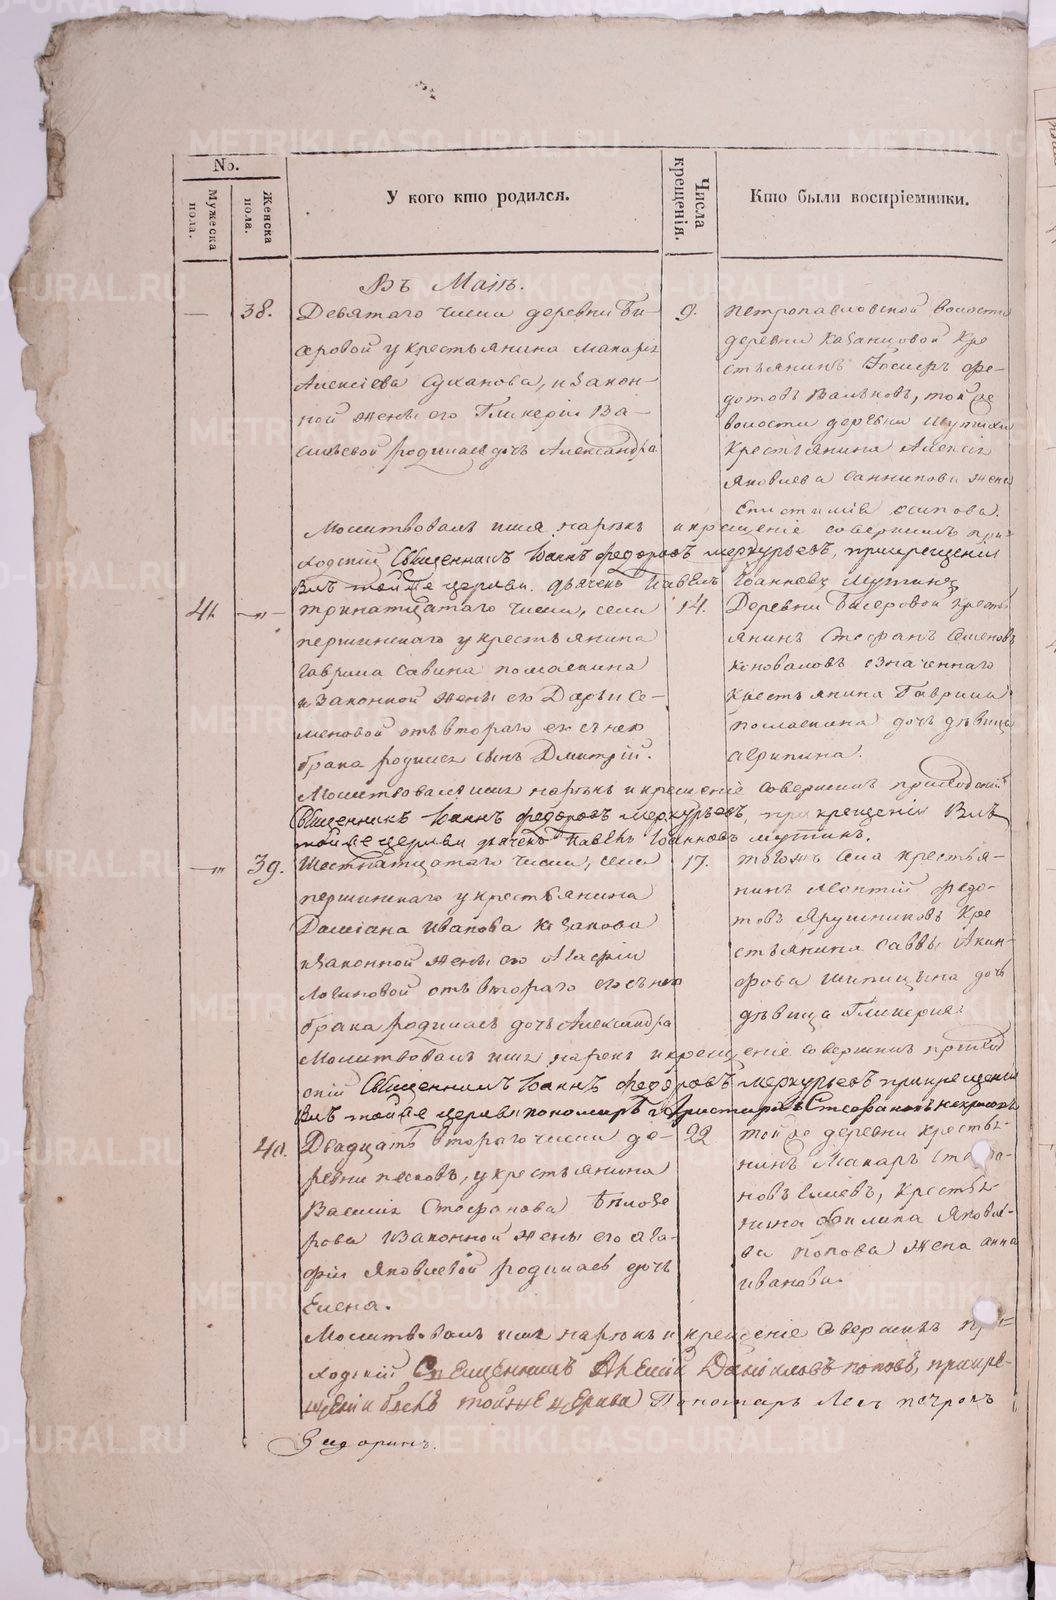 No.
Мужеска пола.
Женска пола.
У кого кто родился.
Числа крещенія.
Кто были воспріемники.
Въ Маіѣ.
— 38. Девятаго числа деревни Би-
серовой у крестьянина Макарія
Алексіева Суханова, и закон-
ной жены его Гликеріи Ва-
сильевой родилась дочь Александра
9.
петропавловской волости
деревни Казанцовой кре
стьянинъ Федо-
товъ той же
волости деревни
крестьянина Алексія
Яковлева Санникова жена
Епистимія осипова.
Молитвовалъ имя нарѣкъ и крещеніе совершилъ при-
ходскій Священникъ Іоаннъ федоровъ меркурьевъ, прикрещеніи
былъ той же церкви дьячекъ Павелъ Іоанновъ мутинъ
41. —"— тринатцатаго числа, села
першинскаго у крестьянина
Гаврила Савина помаскина
и законной жены его Дарьи Се-
меновой отъ втораго ея с нею
брака родился сынъ Дмитрій.
14.
Деревни Бисеровой кресть
янинъ Стефанъ Семеновъ
коноваловъ означеннаго
крестьянина Гаврила
помаскина дочь дѣвица
агрипина.
Молитвовалъ имя нарѣкъ и крещеніе совершилъ приходскій
Священникъ Іоаннъ федоровъ меркурьевъ, при крещеніи былъ
той же церкви дьячекъ Павелъ Іоанновъ мутинъ.
—"— 39. Шестнатцатаго числа, села
першинскаго у крестьянина
Даміана Иванова Казакова
и законной жены его Агафіи
Логиновой отъ втораго его с нею
брака родилась дочь Александра
17.
тогожъ села крестья-
нинъ Леонтій федо-
товъ Ярушниковъ кре
стьянина Саввы Акин-
фова шипицына дочь
дѣвица Гликерия.
Молитвовалъ имя нарекъ и крещеніе совершилъ приход
скій Священникъ Іоаннъ федоровъ меркурьевъ при крещеніи
былъ той же церкви пономарь Аристархъ Стефановъ некрасовъ
40. Двадцать втораго числа де-
ревни песковъ, у крестьянина
Василія Стефанова Бѣлозе
рова и законной жены его ага-
фіи Яковлевой родилась дочь
Елена.
22
той же деревни крестья-
нинъ Макаръ Стефа-
новъ крестья-
нина филипа Яковле-
ва попова жена анна
иванова.
Молитвовалъ имя нарѣкъ и крещеніе совершилъ при-
ходскій Священникъ Алексій Даніиловъ поповъ, прикре-
щеніи былъ тойже церкви Пономарь
METRIKI.GASO-URAL.RU